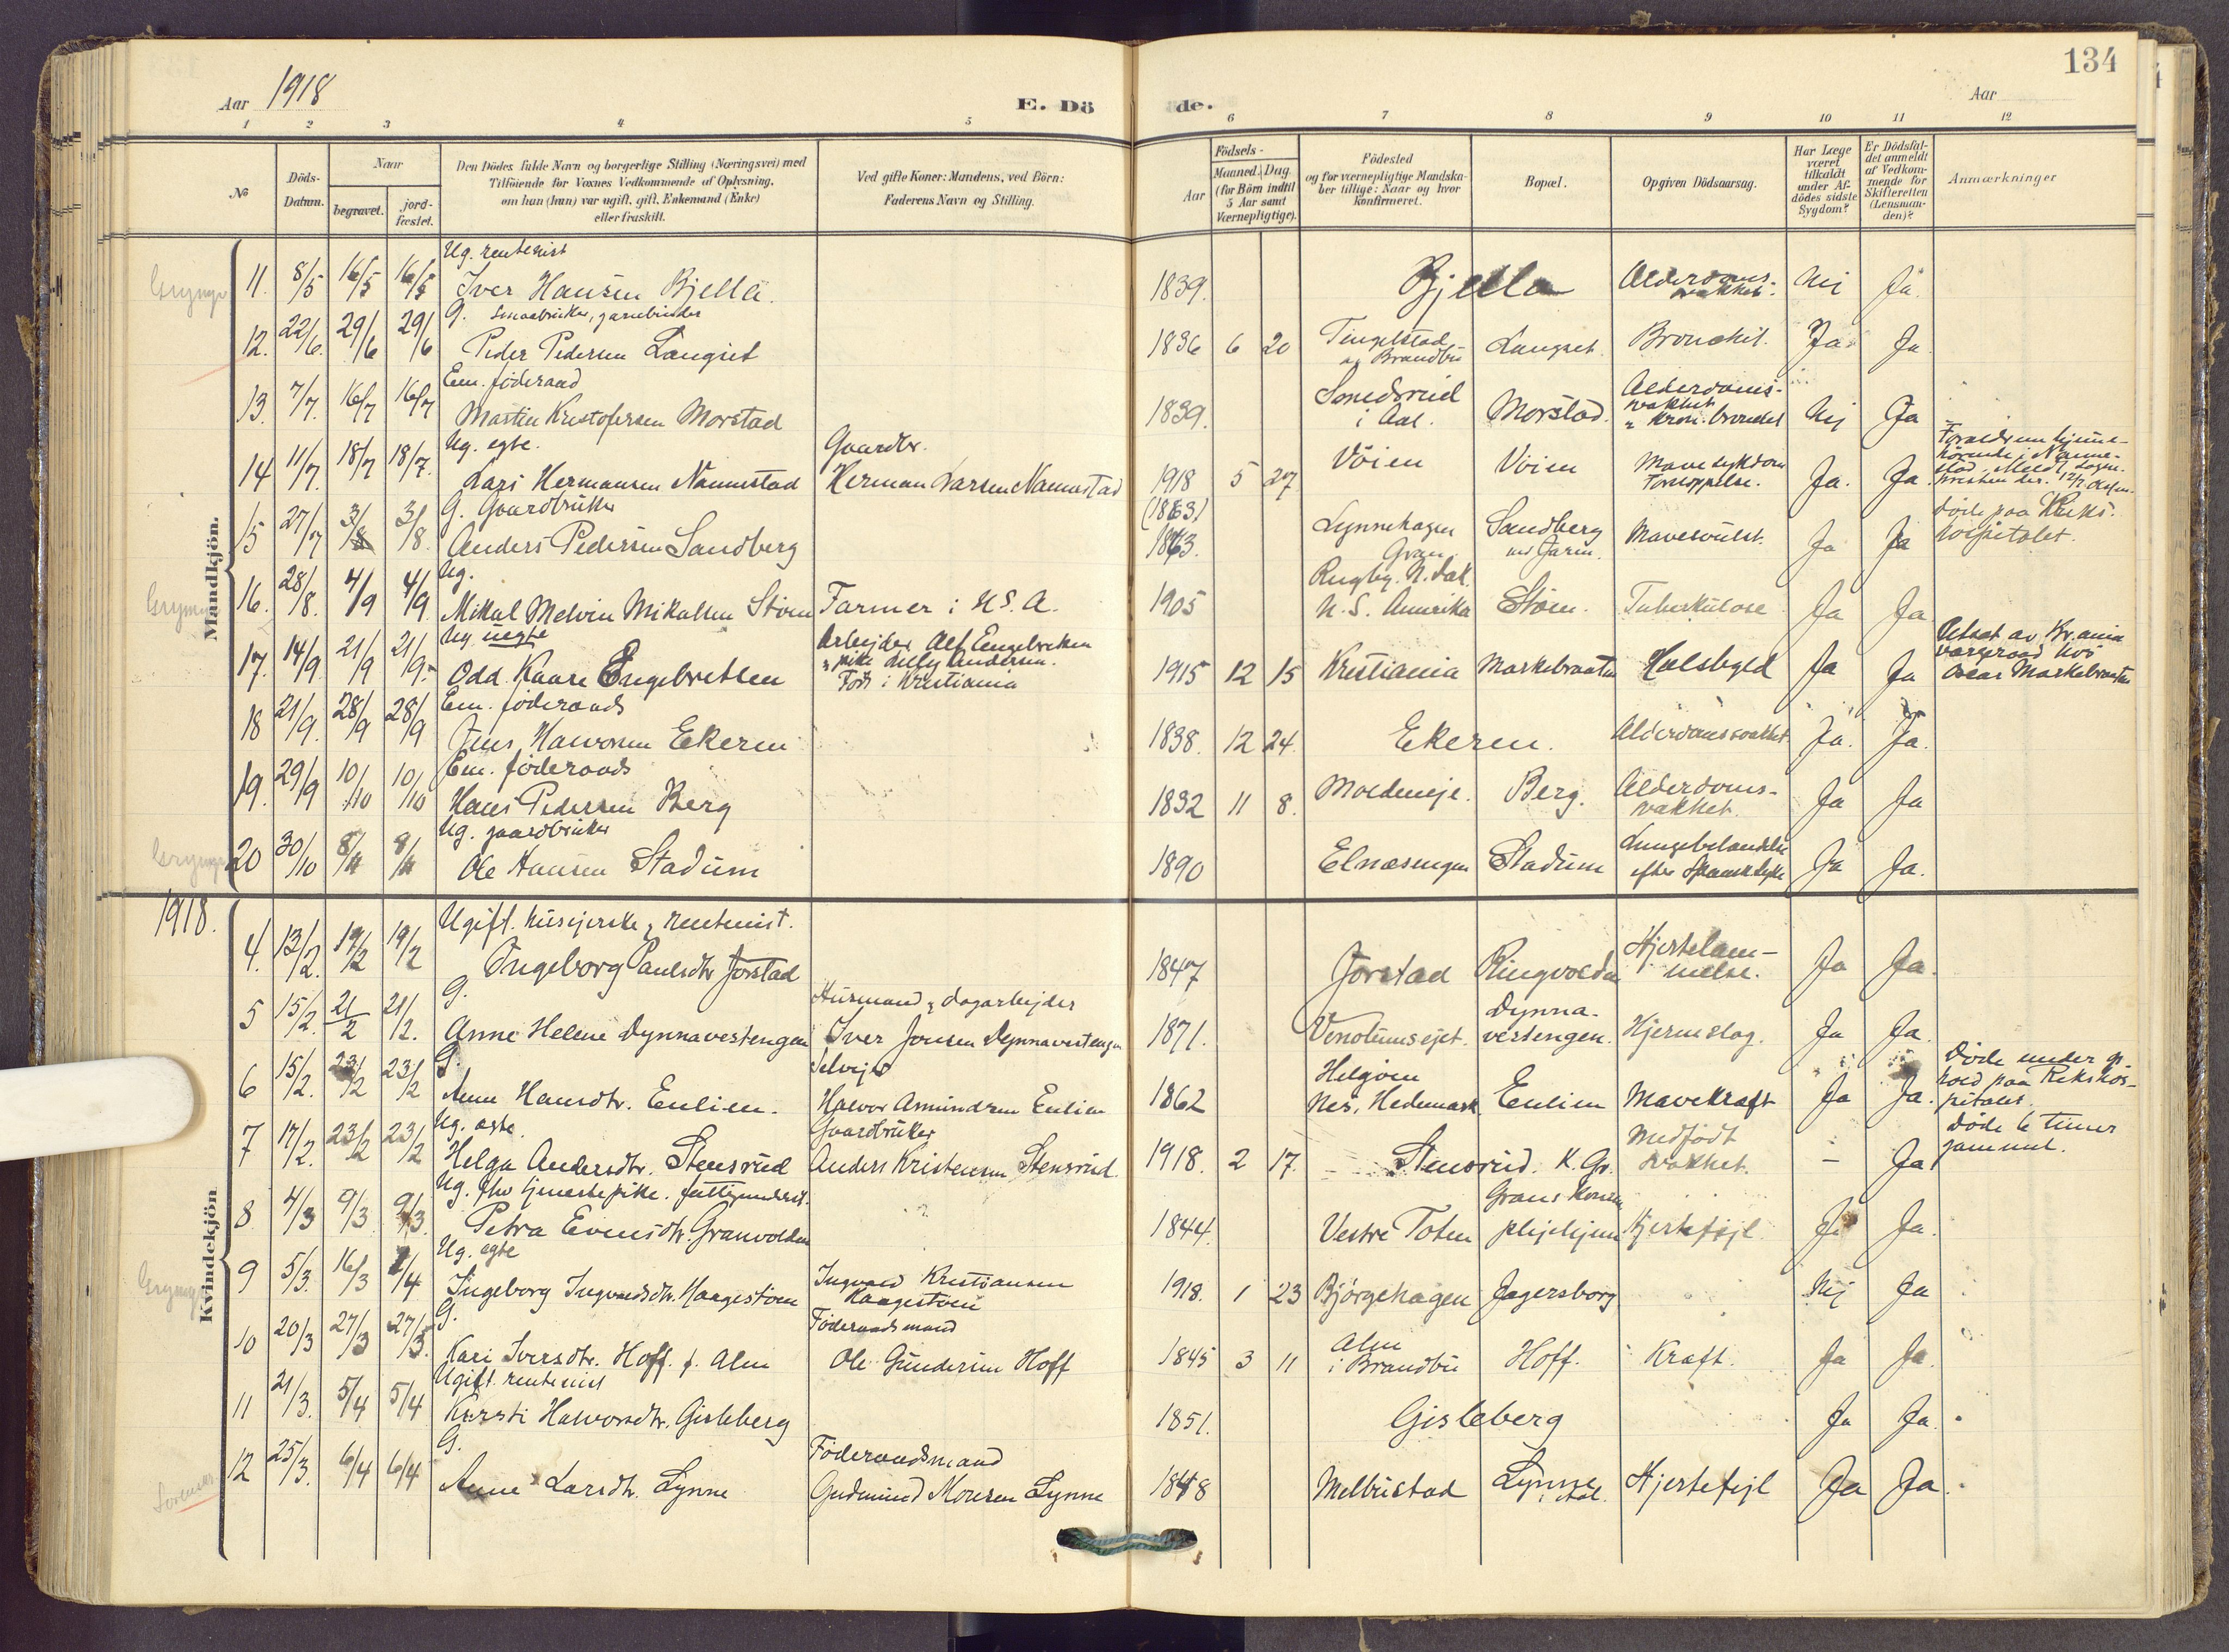 134
Aar 1918
E. Dö de.
Aar
1 2 3 4 5 6 7 8 9 10 11 12
No
Döds-Datum.
Naar
begravet.
jord-fæstet.
Den Dödes fulde Navn og borgerlige Stilling (Næringsvei) med
Tilföiende for Voxnes Vedkommende af Oplysning,
om han (hun) var ugift, gift, Enkemand (Enke)
eller fraskilt.
Ved gifte Koner: Mandens, ved Börn:
Faderens Navn og Stilling.
Födsels-
Aar
Maaned. Dag
(for Börn indtil
5 Aar samt
Værnepligtige).
Födested
og for værnepligtige Mandska-
ber tillige: Naar og hvor
konfirmeret.
Bopæl.
Opgiven Dödsaarsag.
Har Læge
været
tilkaldt
under Af-
dödes sidste
Sygdom?
Er Dödsfal-
det anmeldt
af Vedkom-
mende for
Skifteretten
(Lensman-
den)?
Anmærkninger
Mandkjön.
Ug. rentenist
11. 8/5 16/5 16/5 Iver Hansen Bjella. 1839. Bjella Alderdoms-svakhet. Nei Ja.
G. Smaabruker, garnbinder
12. 22/6. 29/6 29/6 Peder Pedersen Langset 1836 6 20 Tingelstad Brandbu Langset. Bronchit. Ja. Ja
Em. föderaad
13. 7/7. 16/7 16/7 Martin Kristofersen Morstad 1839. Smedsrud i Aal. Morstad. Alderdoms-svakhet kron. bronchit Nei Ja
Ug. egte. Gaardbr.
14 11/7. 18/7 18/7. Lars Hermansen Nammestad Herman Larsen Namestad 1918 5 27 Vöien Vöien Mavesykdom Forstoppelse. Ja. Ja
G. Gaardbruker
15 27/7 3/8 3/8. Anders Pedersen Sandberg (1863) 1863. Lynnehagen Gran. Sandberg ved Jaren. Mavesvulst. Ja Ja döde paa Riks-hospitalet.
Ug.
16. 28/8. 4/9 4/9. Mikal Melvin Mikalsen Stöen Farmer i U.S.A. 1905 Rugby. N. Dak. U.S. Amerika Stöen. Tuberkulose Ja Ja
Ug uegte
17. 14/9. 21/9 21/9. Odd Kaare Engebretsen Arbeider Alf Engebretsen Född i Kristiania 1915 12 15 Kristiania Markebraaten Halsbyld Ja Ja Utsat av Kr.ania vergeraad hos Oscar Markebraaten
Em. föderaads
18 21/9. 28/9 28/9 Jens Halvorsen Ekeren 1838. 12 24. Ekeren. Alderdomssvakhet Ja. Ja.
Em. föderaads
19. 29/9 10/10 10/10 Hans Pedersen Berg 1832 11 8. Moedeneje. Berg. Alderdoms-svakhet. Ja Ja
Ug. gaardbruker
20 30/10 8/11 8/11 Ole Hansen Stadum 1890 Elnæsengen Stadum Lungebetændelse efter Spansk syke Ja Ja.
1918.
Kvindekjön
Ugift. husejerske & rentenist.
4. 13/2. 19/2 19/2 Ingeborg Paulsdtr Jorstad 1847 Jorstad Ringvolden Hjertelam-melse. Ja Ja.
G. Husmand & dagarbejder
5 15/2. 21/2 21/2. Anne Helene Dynnavestengen Iver Jonsen Dynnavestengen 1871. Dynna-vestengen. Hjerneslag. Ja Ja.
G. Selvejer
6 15/2. 23/2 23/2 Anne Hansdtr. Enlien. Halvor Amundsen Enlien 1862 Helgöen Nes, Hedemark Enlien Mavekræft Ja Ja. Döde under op-hold paa Rikshos-pitalet.
Ug. ægte. Gaardbruker
7 17/2. 23/2 23/2 Helga Andersdtr. Stensrud Anders Kristensen Stensrud. 1918. 2 17. Stensrud. K. Gr. Medfödt svakhet. - Ja Döde 6 timer gammel.
Ug. fhv tjenestepike. fattigunderst.
8 4/3 9/3. 9/3. Petra Evensdtr. Granvolden 1844. Vestre Toten Grans Komm. plejehjem Hjertefejl Ja Ja.
Ug. egte
9 5/3. 16/3 2/4 Ingeborg Ingvaldsdtr. Haagestöen Ingvald Kristiansen Haagestöen 1918. 1 23 Bjørgehagen Jagersborg Nej Ja
G. Föderaadsmand
10 20/3 27/3 27/3. Kari Iversdtr. Hoff f. Alm Ole Gundersen Hoff 1845 3 11 Alm i Brandbu Hoff. Kræft. Ja Ja.
Ugift rentenist
11 21/3. 5/4 5/4 Kersti Halvorsdtr. Gisleberg 1851. Gisleberg Ja Ja.
G. Föderaadsmand
12 25/3. 6/4 6/4 Anne Larsdtr. Lynne Gudmund Monsen Lynne 1848 Melbustad Lynne i Aal. Hjertefejl Ja Ja.